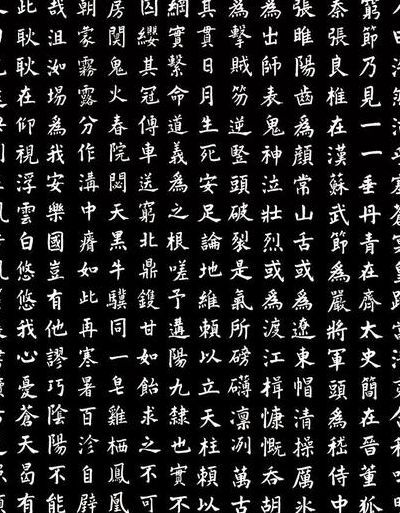 窮節乃見一一垂丹青在齊太史簡在晉董狐
秦張良椎在漢蘇武節為嚴將軍頭為嵇侍中
張睢陽齒為顏常山舌或為遼東帽清操厲氷
為出師表鬼神泣壯烈或為渡江楫慷慨吞胡
為擊賊笏逆豎頭破裂是氣所磅礴凛冽萬古
其貫日月生死安足論地維賴以立天柱賴以
綱實繫命道義為之根嗟予遘陽九隸也實不
囚纓其冠傳車送窮北鼎鑊甘如飴求之不可
房闃鬼火春院閟天黑牛驥同一皂雞栖鳳凰
朝蒙霧露分作溝中瘠如此再寒暑百沴自辟
哉沮洳場為我安樂國豈有他謬巧陰陽不能
此耿耿在仰視浮雲白悠悠我心憂蒼天曷有